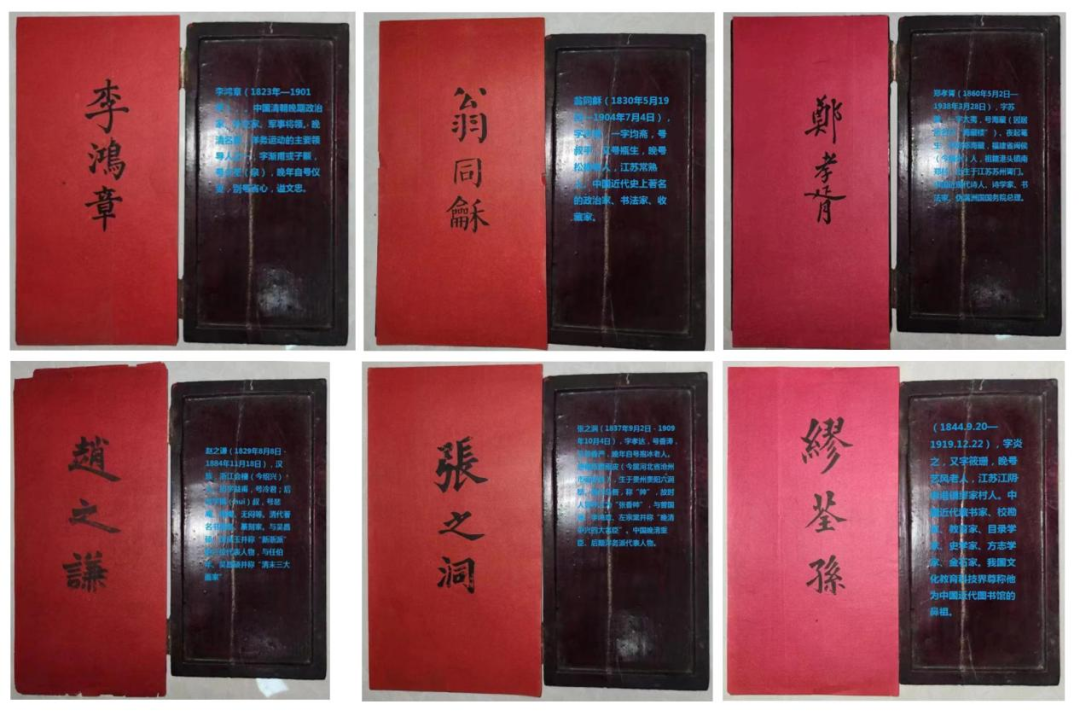 李鴻章
李鸿章（1823年—1901
中国清朝晚期政治
家、外交家、军事将领。晚
清名臣，洋务运动的主要领
导人之一，字渐甫或子黻，
号少荃（泉），晚年自号仪
叟，别号省心，谥文忠。
翁同龢
翁同龢（1830年5月19
日—1904年7月4日），
字叔平，一字均斋，号
叔平，又号瓶生，晚号
松禅老人，江苏常熟
人，中国近代史上著名
的政治家、书法家、收
藏家。
鄭孝胥
郑孝胥（1860年5月2日—
1938年3月28日），字苏
一字太夷，号海藏
福建省闽侯
人，祖籍
生于江苏苏州胥门。
近代诗人、诗学家、书
法家、伪满洲国国务院总理。
趙之謙
赵之谦（1829年8月8日-
1884年11月18日），汉
族，浙江会稽（今绍兴）
人，初字益甫，号冷君；后
改字撝（huī）叔，号悲
庵、梅庵、无闷等。清代著
名书画家、篆刻家。与吴昌
并称"新浙派"
的三位代表人物，与任伯
年、吴昌硕并称"清末三大
画家"
張之洞
张之洞（1837年9月2日 - 1909
年10月4日），字孝达，号香涛，
晚年自号抱冰老人。
（今属河北省沧州
人，生于贵州贵阳六洞
称"帅"，故时
"张香帅"，与曾国
藩、李鸿章、左宗棠并称"晚清
中兴四大名臣"。中国晚清重
臣，后期洋务派代表人物。
繆荃孫
（1844.9.20—
1919.12.22），字炎
之，又字筱珊，晚号
艺风老人，江苏江阴
申港镇缪家村人。中
国近代藏书家、校勘
家、教育家、目录学
家、史学家、方志学
家、金石家。我国文
化教育科技界尊称他
为中国近代图书馆的
鼻祖。